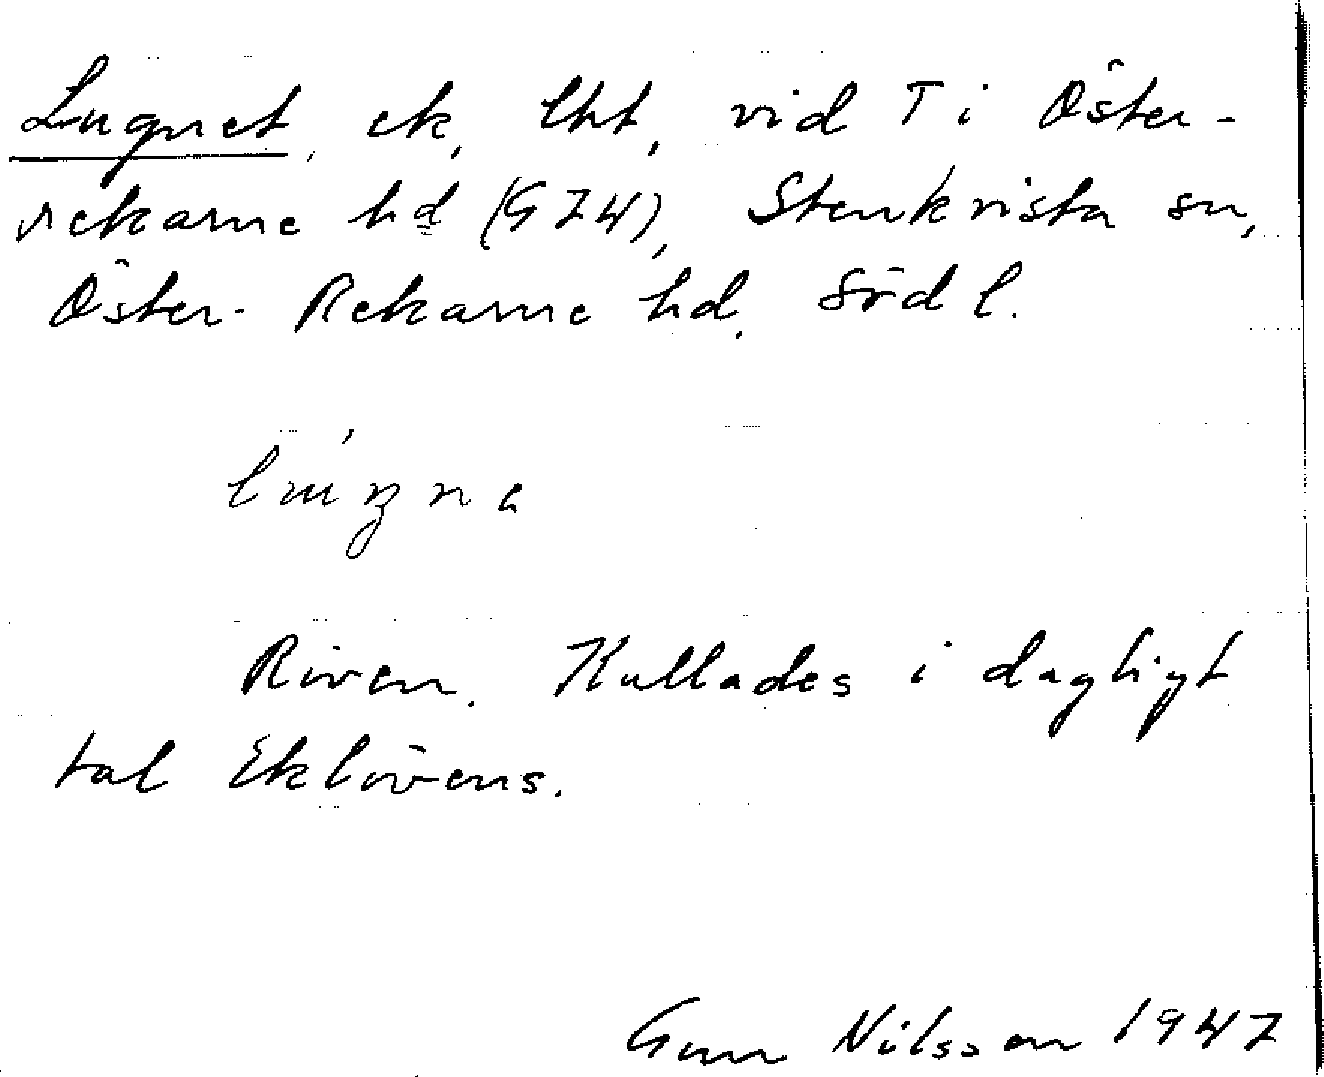 Lugnet, ek, lht, vid T i Öster-
rekarne hd (G74), Stenkvista sn,
Öster-Rekarne hd, Södl.
Riven. Kallades i dagligt
tal Eklövens.
Gun Nilsson 1947